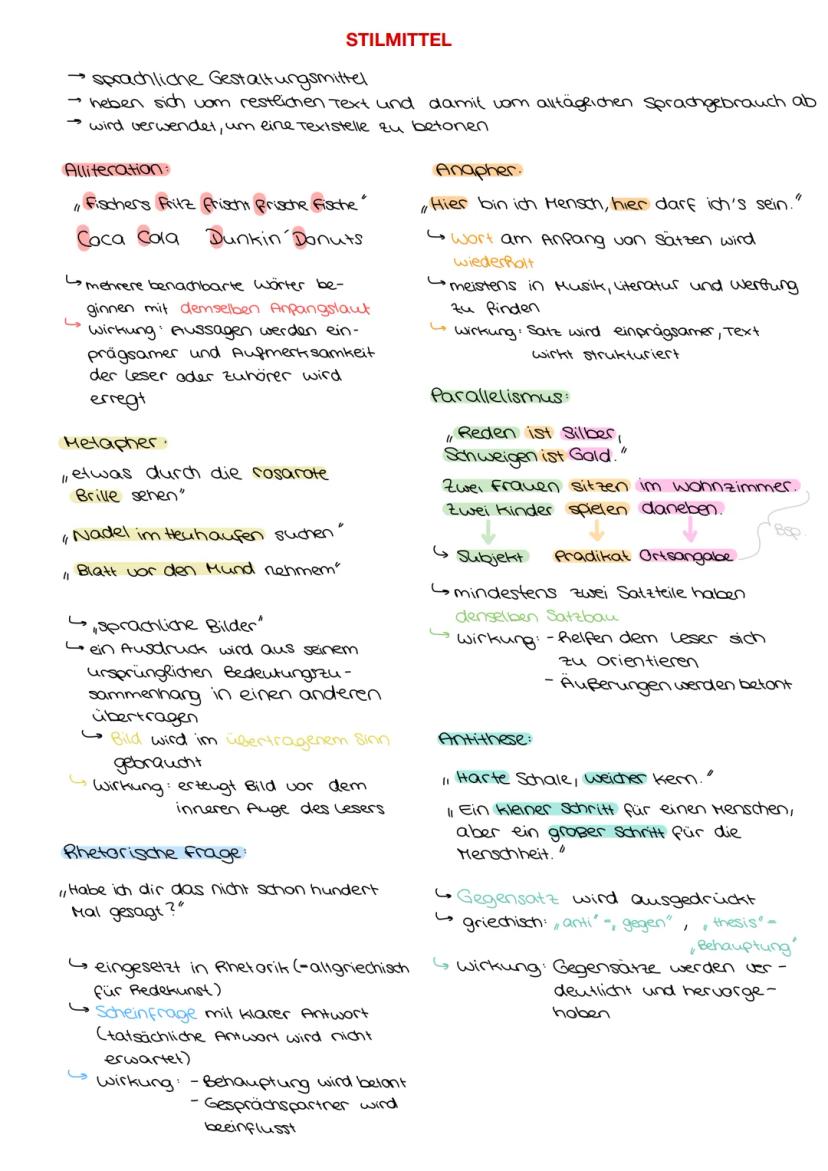 STILMITTEL
→ sprachliche Gestaltungsmittel
→ heben sich vom restlichen Text und damit vom alltäglichen Sprachgebrauch ab
→ wird verwendet, um eine Textstelle zu betonen
Alliteration:
„Fischers Fritz frischt frische Fische“
Coca Cola Dunkin´Donuts
↳ mehrere benachbarte Wörter be-
ginnen mit demselben Anfangslaut
↳ Wirkung: Aussagen werden ein-
prägsamer und Aufmerksamkeit
der Leser oder Zuhörer wird
erregt
Metapher:
„etwas durch die rosarote
Brille sehen“
„Nadel im Heuhaufen suchen“
„Blatt vor den Mund nehmen“
↳ „sprachliche Bilder“
↳ ein Ausdruck wird aus seinem
ursprünglichen Bedeutungszu-
sammenhang in einen anderen
übertragen
↳ Bild wird im übertragenem Sinn
gebraucht
↳ Wirkung: erzeugt Bild vor dem
inneren Auge des Lesers
Rhetorische Frage:
„Habe ich dir das nicht schon hundert
Mal gesagt?“
↳ eingesetzt in Rhetorik (=altgriechisch
für Redekunst)
↳ Scheinfrage mit klarer Antwort
(tatsächliche Antwort wird nicht
erwartet)
↳ Wirkung: - Behauptung wird betont
- Gesprächspartner wird
beeinflusst
Anapher:
„Hier bin ich Mensch, hier darf ich's sein.“
↳ Wort am Anfang von Sätzen wird
wiederholt
↳ meistens in Musik, Literatur und Werbung
zu finden
↳ Wirkung: Satz wird einprägsamer, Text
wirkt strukturiert
Parallelismus:
„Reden ist Silber,
Schweigen ist Gold.“
Zwei Frauen sitzen im Wohnzimmer.
Zwei Kinder spielen daneben.
Bsp.
↳ Subjekt Prädikat Ortsangabe
↳ mindestens zwei Satzteile haben
denselben Satzbau
↳ Wirkung: - helfen dem Leser sich
zu orientieren
- Äußerungen werden betont
Antithese:
„Harte Schale, weicher Kern.“
„Ein kleiner Schritt für einen Menschen,
aber ein großer Schritt für die
Menschheit.“
↳ Gegensatz wird ausgedrückt
↳ griechisch: „anti“=„gegen“, „thesis“=
„Behauptung“
↳ Wirkung: Gegensätze werden ver-
deutlicht und hervorge-
hoben